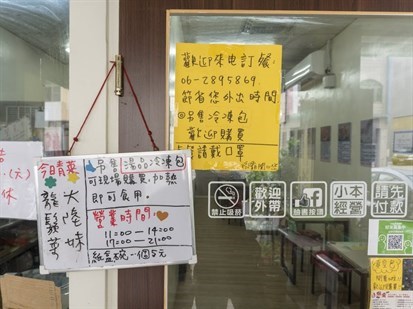 歡迎來电訂餐:
06-2895869.
節省您外出時間
@另售冷凍包
歡迎購買
請載口罩
另售湯品冷凍包
可現場購買.加熱
即可食用。
營業時間:
11:00-14:00
17:00-21:00
紙盒碗一個5元
今日青菜
大陸妹
龍鬚菜
(元)
休
禁止吸菸
歡迎外帶
臉書按讚
小本經營
請先付款